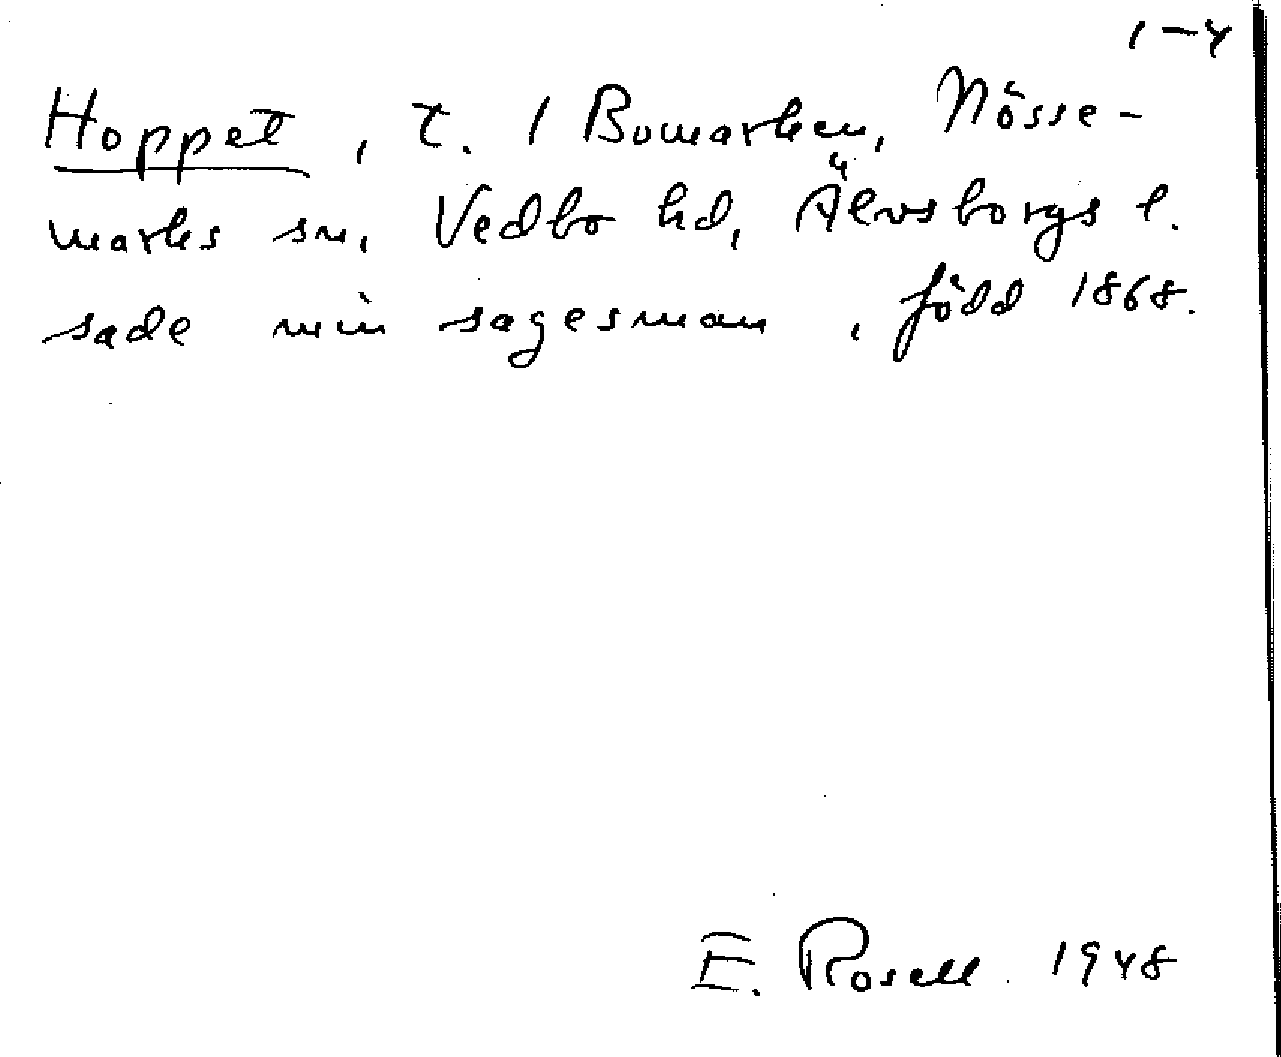 1-4
Hoppet, t. / Bomarken, Nösse-
marks sn, Vedbo hd, Älvsborgs l.
sade min sagesman, född 1868.
E. Rosell 1948